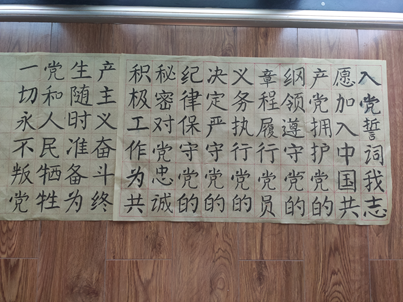 入党誓词我志
愿加入中国共
产党拥护党的
纲领遵守党的
章程履行党员
义务执行党的
决定严守党的
纪律保守党的
秘密对党忠诚
积极工作为共
产主义奋斗终
生随时准备为
党和人民牺牲
一切永不叛党